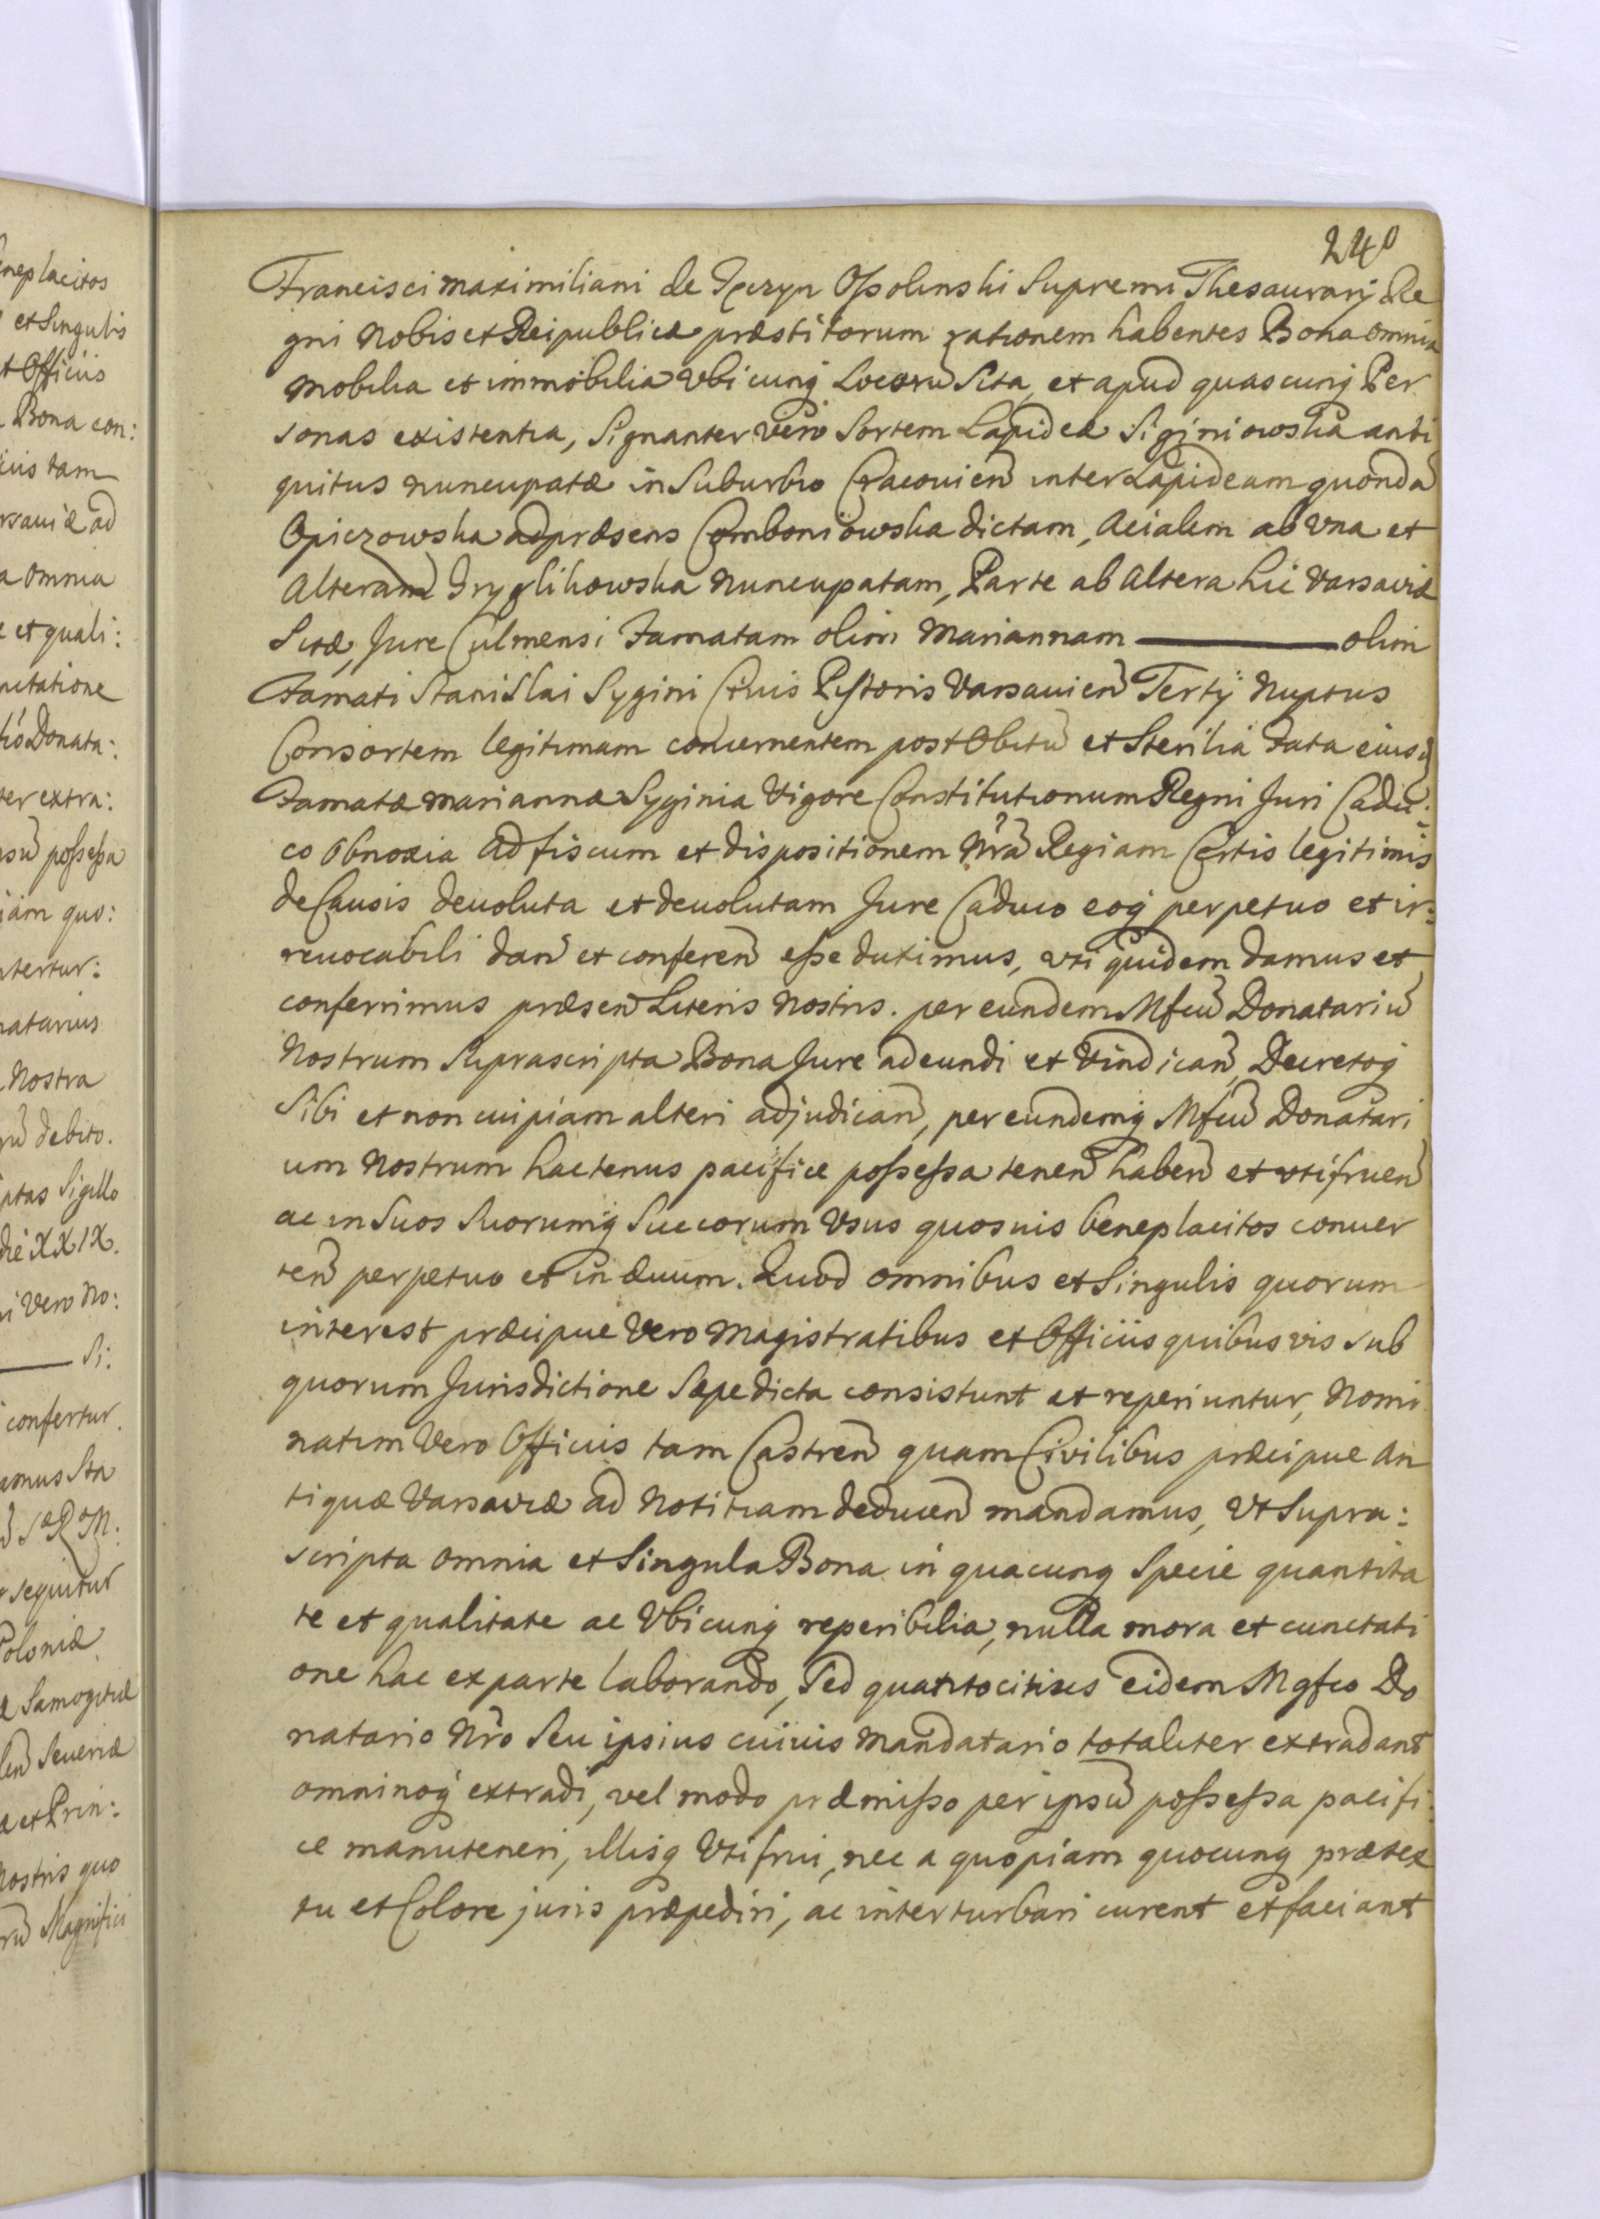 240
Francisci Maximiliani de Tęczyn Ossolinski Supremi Thesaurarij Re
gni Nobis et Reipublicæ præstitorum rationem habentes Bona omnia
Mobilia et immobilia Vbicunq Locorū Sita, et apud quascunq Per
sonas existentia, Signanter Vero Sortem Lapideæ Siginiowska anti
quitus nuncupatæ in Suburbio Cracovien inter Lapideam quondā
Opiczowska ad præsens Comboniowska dictam, Acialem ab Vna et
Alteram Gryglikowska Nuncupatam, Parte ab Altera hic Varsaviæ
Sitæ, Jure Culmensi Famatam olim Mariannam ——— olim
Famati Stanislai Sygini Civis Pistoris Varsavien Tertÿ Nuptus
Consortem legitimam concernentem post Obitū et Sterilia Fata eiusd
Famatæ Mariannæ Syginia Vigore Constitutionum Regni Juri Cadu-
co Obnoxia Ad fiscum et dispositionem Nrā Regiam Certis legitimis
de Causis devoluta et devolutam Jure Caduco eoq perpetuo et ir:
revocabili dan et conferen esse duximus, vti quidem damus et
conferimus præsen Literis Nostris. per eundem Mfcū Donatariū
Nostrum Suprascripta Bona Jure adeundi et Vindican, Decretoq
Sibi et non cuipiam alteri adjudican, per eundemq Mfcū Donatari
um Nostrum hactenus pacifice possessa tenen haben et vtifruen
ac in Suos Suorumq Succorum Vsus quosvis beneplacitos conver
ten perpetuo et in ævum. Quod omnibus et Singulis quorum
interest præcipue Vero Magistratibus et Officiis quibusvis sub
quorum Jurisdictione Sæpe dicta consistunt et reperiuntur, Nomi
natim Vero Officiis tam Castren quam Civilibus præcipue An
tiquæ Varsaviæ ad Notitiam deducen mandamus, Vt Supra:
scripta omnia et Singula Bona in quacunq Specie quantita
te et qualitate ac Vbicunq reperibilia, nulla mora et cunctati
one hac ex parte laborando, Sed quantocitius eidem Mgfco Do
natario Nrō Seu ipsius cuivis Mandatario totaliter extradant
omninoq extradi, vel modo præmisso per ipsū possessa pacifi:
ce manuteneri, illisq Vti frui, nec a quopiam quocunq prætex
tu et Colore juris præpediri, ac interturbari curent et faciant